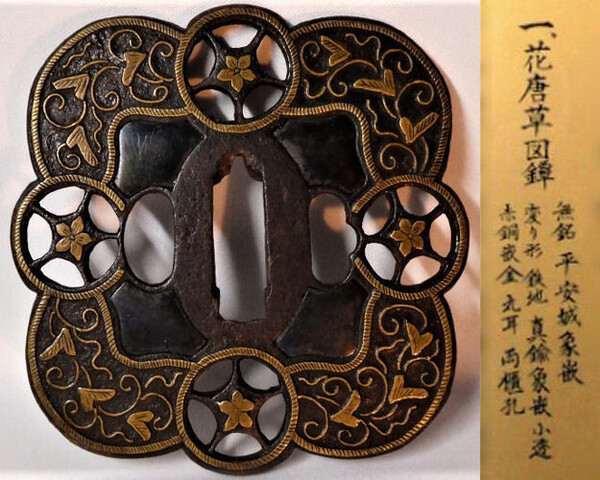 一、花唐草図鐔
無銘 平安城象嵌
変り形 鉄地 真鍮象嵌 小透
赤銅嵌金 丸耳 両櫃孔